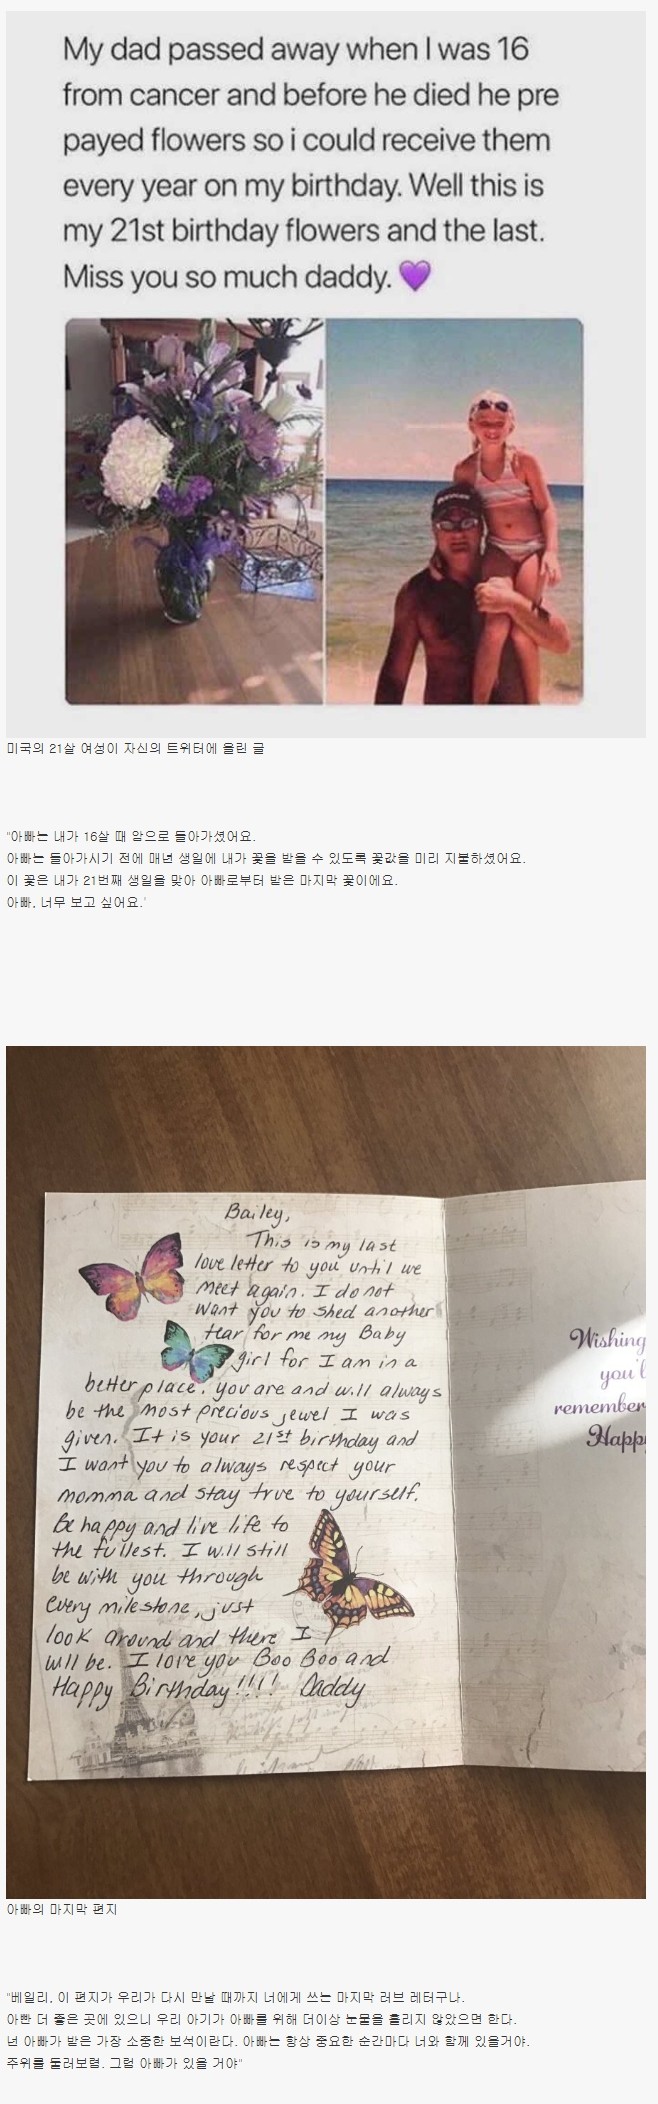 My dad passed away when I was 16
from cancer and before he died he pre
payed flowers so i could receive them
every year on my birthday. Well this is
my 21st birthday flowers and the last.
Miss you so much daddy. 💜
미국의 21살 여성이 자신의 트위터에 올린 글
"아빠는 내가 16살 때 암으로 돌아가셨어요.
아빠는 돌아가시기 전에 매년 생일에 내가 꽃을 받을 수 있도록 꽃값을 미리 지불하셨어요.
이 꽃은 내가 21번째 생일을 맞아 아빠로부터 받은 마지막 꽃이에요.
아빠, 너무 보고 싶어요.'
Bailey,
This is my last
love letter to you until we
meet again. I do not
want you to shed another
tear for me my Baby
girl for I am in a
better place. you are and will always
be the most precious jewel I was
given. It is your 21st birthday and
I want you to always respect your
momma and stay true to yourself.
Be happy and live life to
the fullest. I will still
be with you through
every milestone, just
look around and there I
will be. I love you Boo Boo and
Happy Birthday!!!! Daddy
Wishing
you'l
remember
Happ
아빠의 마지막 편지
"베일리, 이 편지가 우리가 다시 만날 때까지 너에게 쓰는 마지막 러브 레터구나.
아빤 더 좋은 곳에 있으니 우리 아기가 아빠를 위해 더이상 눈물을 흘리지 않았으면 한다.
넌 아빠가 받은 가장 소중한 보석이란다. 아빠는 항상 중요한 순간마다 너와 함께 있을거야.
주위를 둘러보렴. 그럼 아빠가 있을 거야"